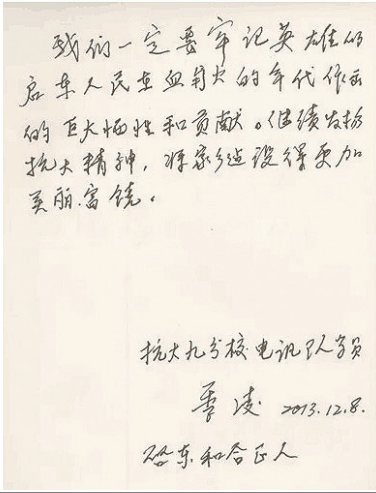 我们一定要牢记英雄的
启东人民在血与火的年代作出
的巨大牺牲和贡献。继续发扬
抗大精神，将家乡建设得更加
美丽、富饶。
抗大九分校电讯队学员
季凌 2013.12.8.
启东和合正人